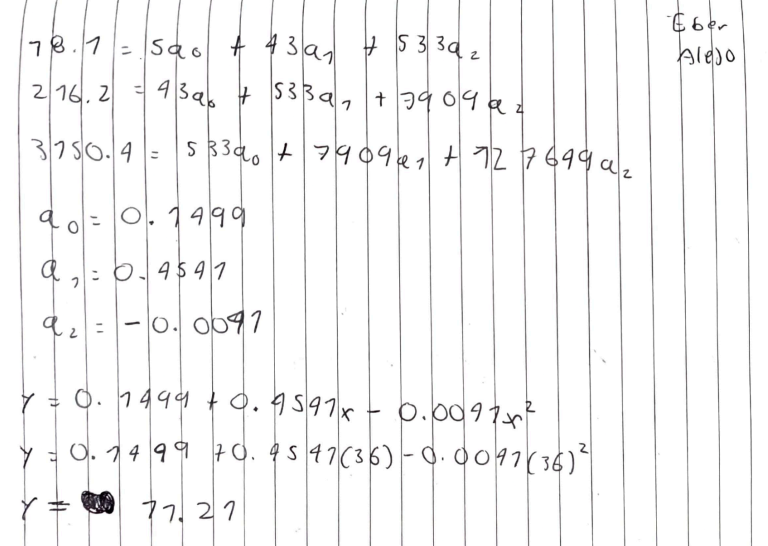 Eber
Alejo
18.1 = 5a₀ + 43a₁ + 533a₂
216.2 = 43a₀ + 533a₁ + 7909a₂
3150.4 = 533a₀ + 7909a₁ + 127649a₂
a₀ = 0.1499
a₁ = 0.4541
a₂ = -0.0041
Y = 0.1499 + 0.4541x - 0.0041x²
Y = 0.1499 + 0.4541(36) - 0.0041(36)²
Y = 11.21